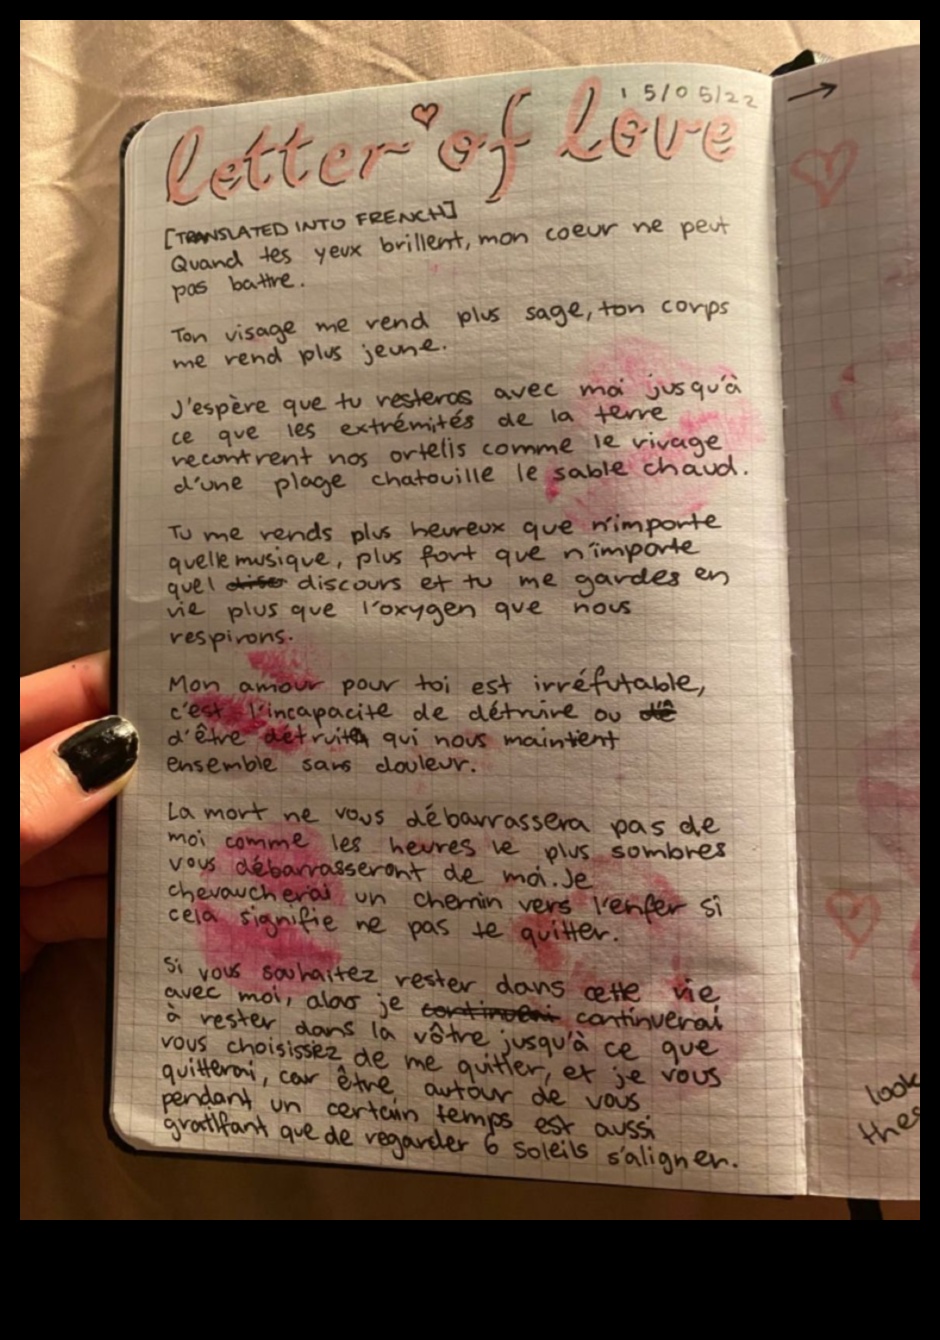 15/05/22
letter of love
[TRANSLATED INTO FRENCH]
Quand tes yeux brillent, mon coeur ne peut
pas battre.
Ton visage me rend plus sage, ton corps
me rend plus jeune.
J'espère que tu resteras avec moi jusqu'à
ce que les extrémités de la terre
recontrent nos ortelis comme le rivage
d'une plage chatouille le sable chaud.
Tu me rends plus heureux que n'importe
quelle musique, plus fort que n'importe
quel discours et tu me gardes en
vie plus que l'oxygen que nous
respirons.
Mon amour pour toi est irréfutable,
c'est l'incapacite de détruire ou
d'être détruit qui nous maintient
ensemble sans douleur.
La mort ne vous débarrassera pas de
moi comme les heures le plus sombres
vous débarrasseront de moi. Je
chevaucherai un chemin vers l'enfer si
cela signifie ne pas te quitter.
Si vous souhaitez rester dans cette vie
avec moi, alao je continuerai
à rester dans la vôtre jusqu'à ce que
vous choisissez de me quitter, et je vous
quitterai, car être autour de vous
pendant un certain temps est aussi
gratifant que de regarder 6 soleils s'aligner.
look
thes